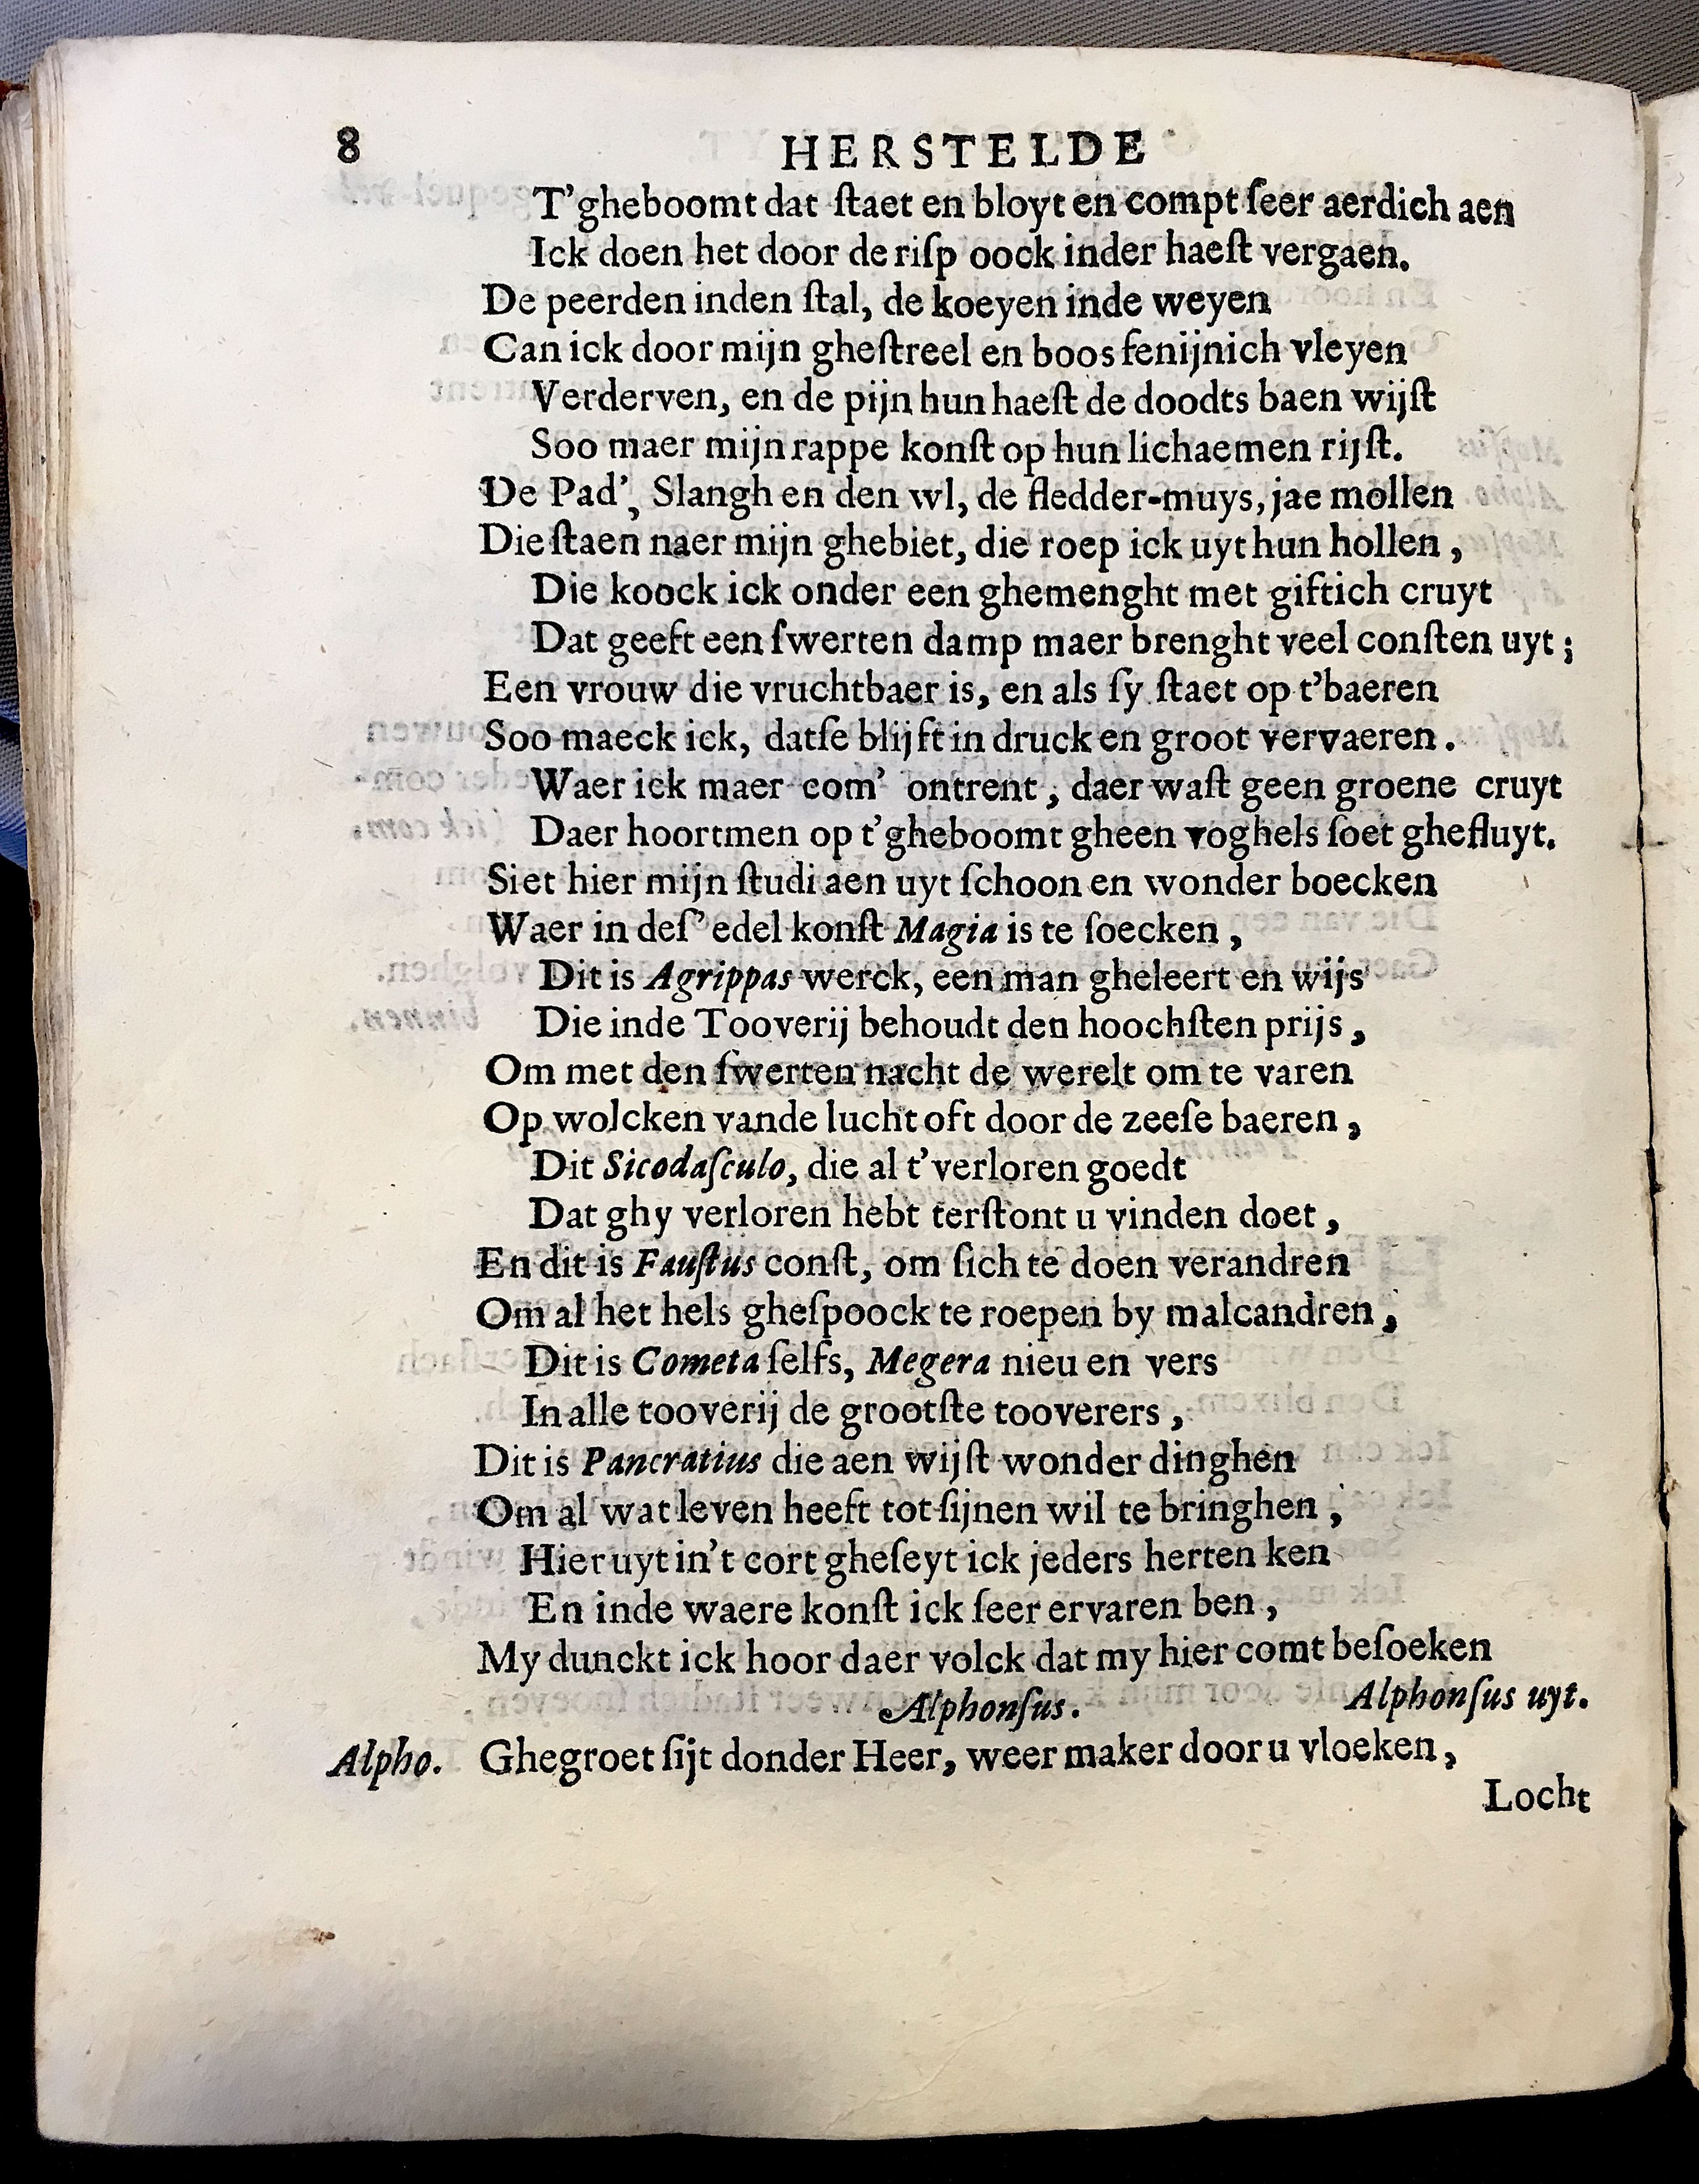 8 HERSTELDE
T'gheboomt dat ſtaet en bloyt en compt ſeer aerdich aen
Ick doen het door de riſp oock inder haeſt vergaen.
De peerden inden ſtal, de koeyen inde weyen
Can ick door mijn gheſtreel en boos fenijnich vleyen
Verderven, en de pijn hun haeſt de doodts baen wijſt
Soo maer mijn rappe konſt op hun lichaemen rijſt.
De Pad', Slangh en den wl, de fledder-muys, jae mollen
Die ſtaen naer mijn ghebiet, die roep ick uyt hun hollen,
Die koock ick onder een ghemenght met giftich cruyt
Dat geeft een ſwerten damp maer brenght veel conſten uyt;
Een vrouw die vruchtbaer is, en als ſy ſtaet op t'baeren
Soo maeck ick, datſe blijft in druck en groot vervaeren.
Waer ick maer com' ontrent, daer waſt geen groene cruyt
Daer hoortmen op t'gheboomt gheen voghels ſoet ghefluyt.
Siet hier mijn ſtudi aen uyt ſchoon en wonder boecken
Waer in deſ' edel konſt Magia is te ſoecken,
Dit is Agrippas werck, een man gheleert en wijs
Die inde Tooverij behoudt den hoochſten prijs,
Om met den ſwerten nacht de werelt om te varen
Op wolcken vande lucht oft door de zeeſe baeren,
Dit Sicodaſculo, die al t'verloren goedt
Dat ghy verloren hebt terſtont u vinden doet,
En dit is Fauſtus conſt, om ſich te doen verandren
Om al het hels gheſpoock te roepen by malcandren,
Dit is Cometa ſelfs, Megera nieu en vers
In alle tooverij de grootſte tooverers,
Dit is Pancratius die aen wijſt wonder dinghen
Om al wat leven heeft tot ſijnen wil te bringhen,
Hier uyt in't cort gheſeyt ick jeders herten ken
En inde waere konſt ick ſeer ervaren ben,
My dunckt ick hoor daer volck dat my hier comt beſoeken
Alphonſus. Alphonſus uyt.
Alpho. Ghegroet ſijt donder Heer, weer maker door u vloeken,
Locht